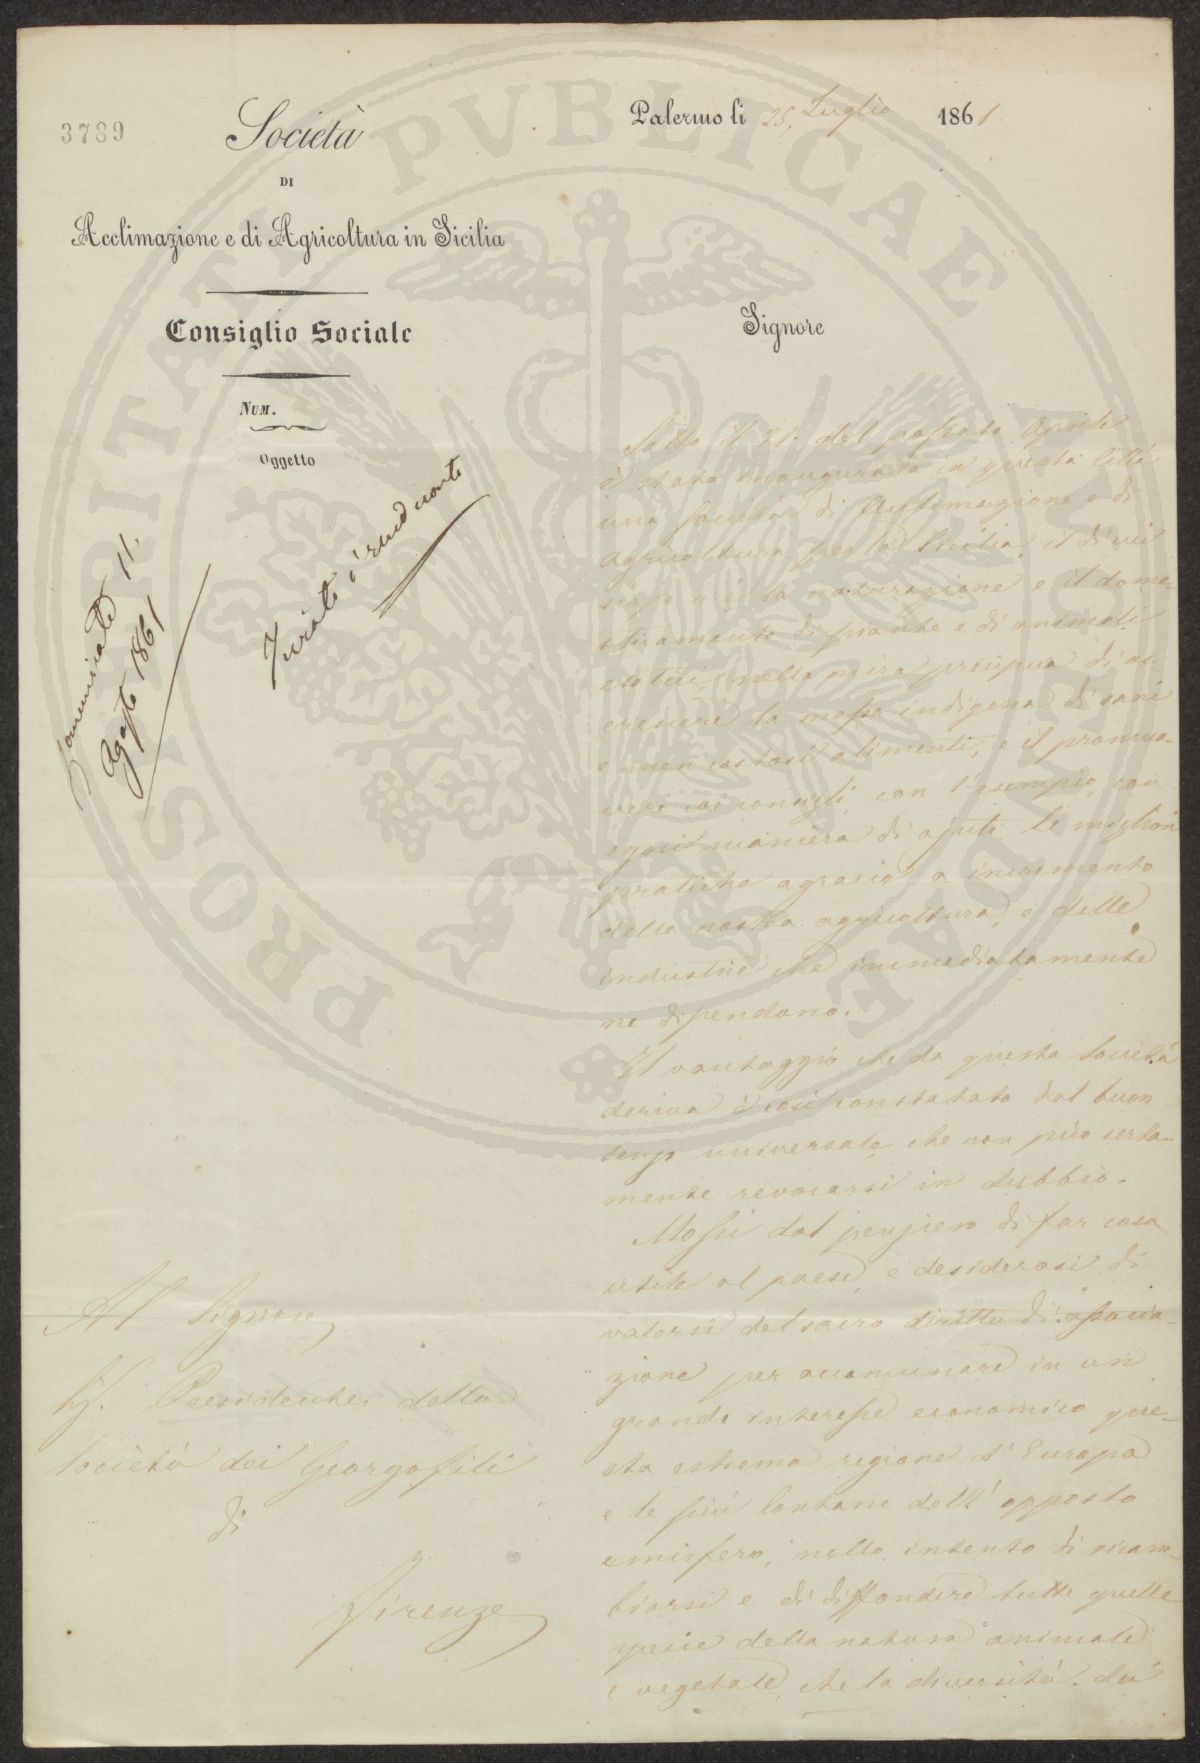 3789
Società
DI
Acclimazione e di Agricoltura in Sicilia
Consiglio Sociale
NUM.
Oggetto
Comunicata 11.
Agosto 1861
Palermo li 25, Luglio 1861.
Signore
Sotto il 21. del passato Aprile
è stata inaugurata in questa Città
una Società di Acclimazione e di
Agricoltura per la Sicilia, il di cui
scopo è la naturazione e il dome-
sticamento di piante e di animali
esotici, nella mira precipua di ac-
crescere la massa indigena di sani
e men costosi alimenti, e il promuo-
vere coi consigli, con l'esempio, con
ogni maniera di ajuti le migliori
pratiche agrarie a incremento
della nostra agricoltura, e delle
industrie che immediatamente
ne dipendano.
Il vantaggio che da questa Società
deriva è così constatato dal buon
senso universale, che non può certa-
mente revocarsi in dubbio.
Mossi dal pensiero di far cosa
utile al paese, e desiderosi di
valersi del sacro diritto di associa-
zione per accomunare in un
grande interesse economico que-
sta estrema regione d'Europa
e le più lontane dell'opposto
emisfero, nello intento di ricam-
biarsi e di diffondere tutte quelle
specie della natura animale
e vegetale, che la diversità dei
Al Signore
Presidente della
Società dei Georgofili
di
Firenze
PROSPERITATI PVBLICAE AVGENDAE